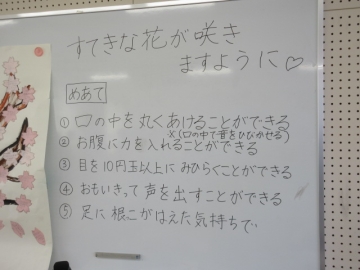 すてきな花が咲き
ますように♡
めあて
① 口の中を丸くあけることができる
×(口の中で音をひびかせる)
② お腹に力を入れることができる
③ 目を10円玉以上にみひらくことができる
④ おもいきって声を出すことができる
⑤ 足に根っこがはえた気持ちで…